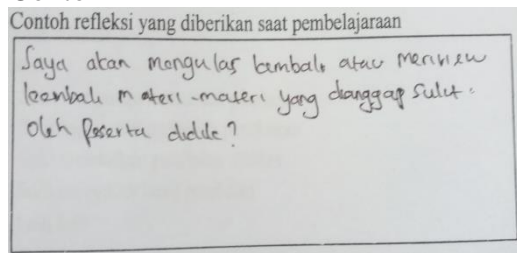 Contoh refleksi yang diberikan saat pembelajaraan
Saya akan mengulas kembali atau mereview
kembali materi-materi yang dianggap sulit
Oleh Peserta didik?